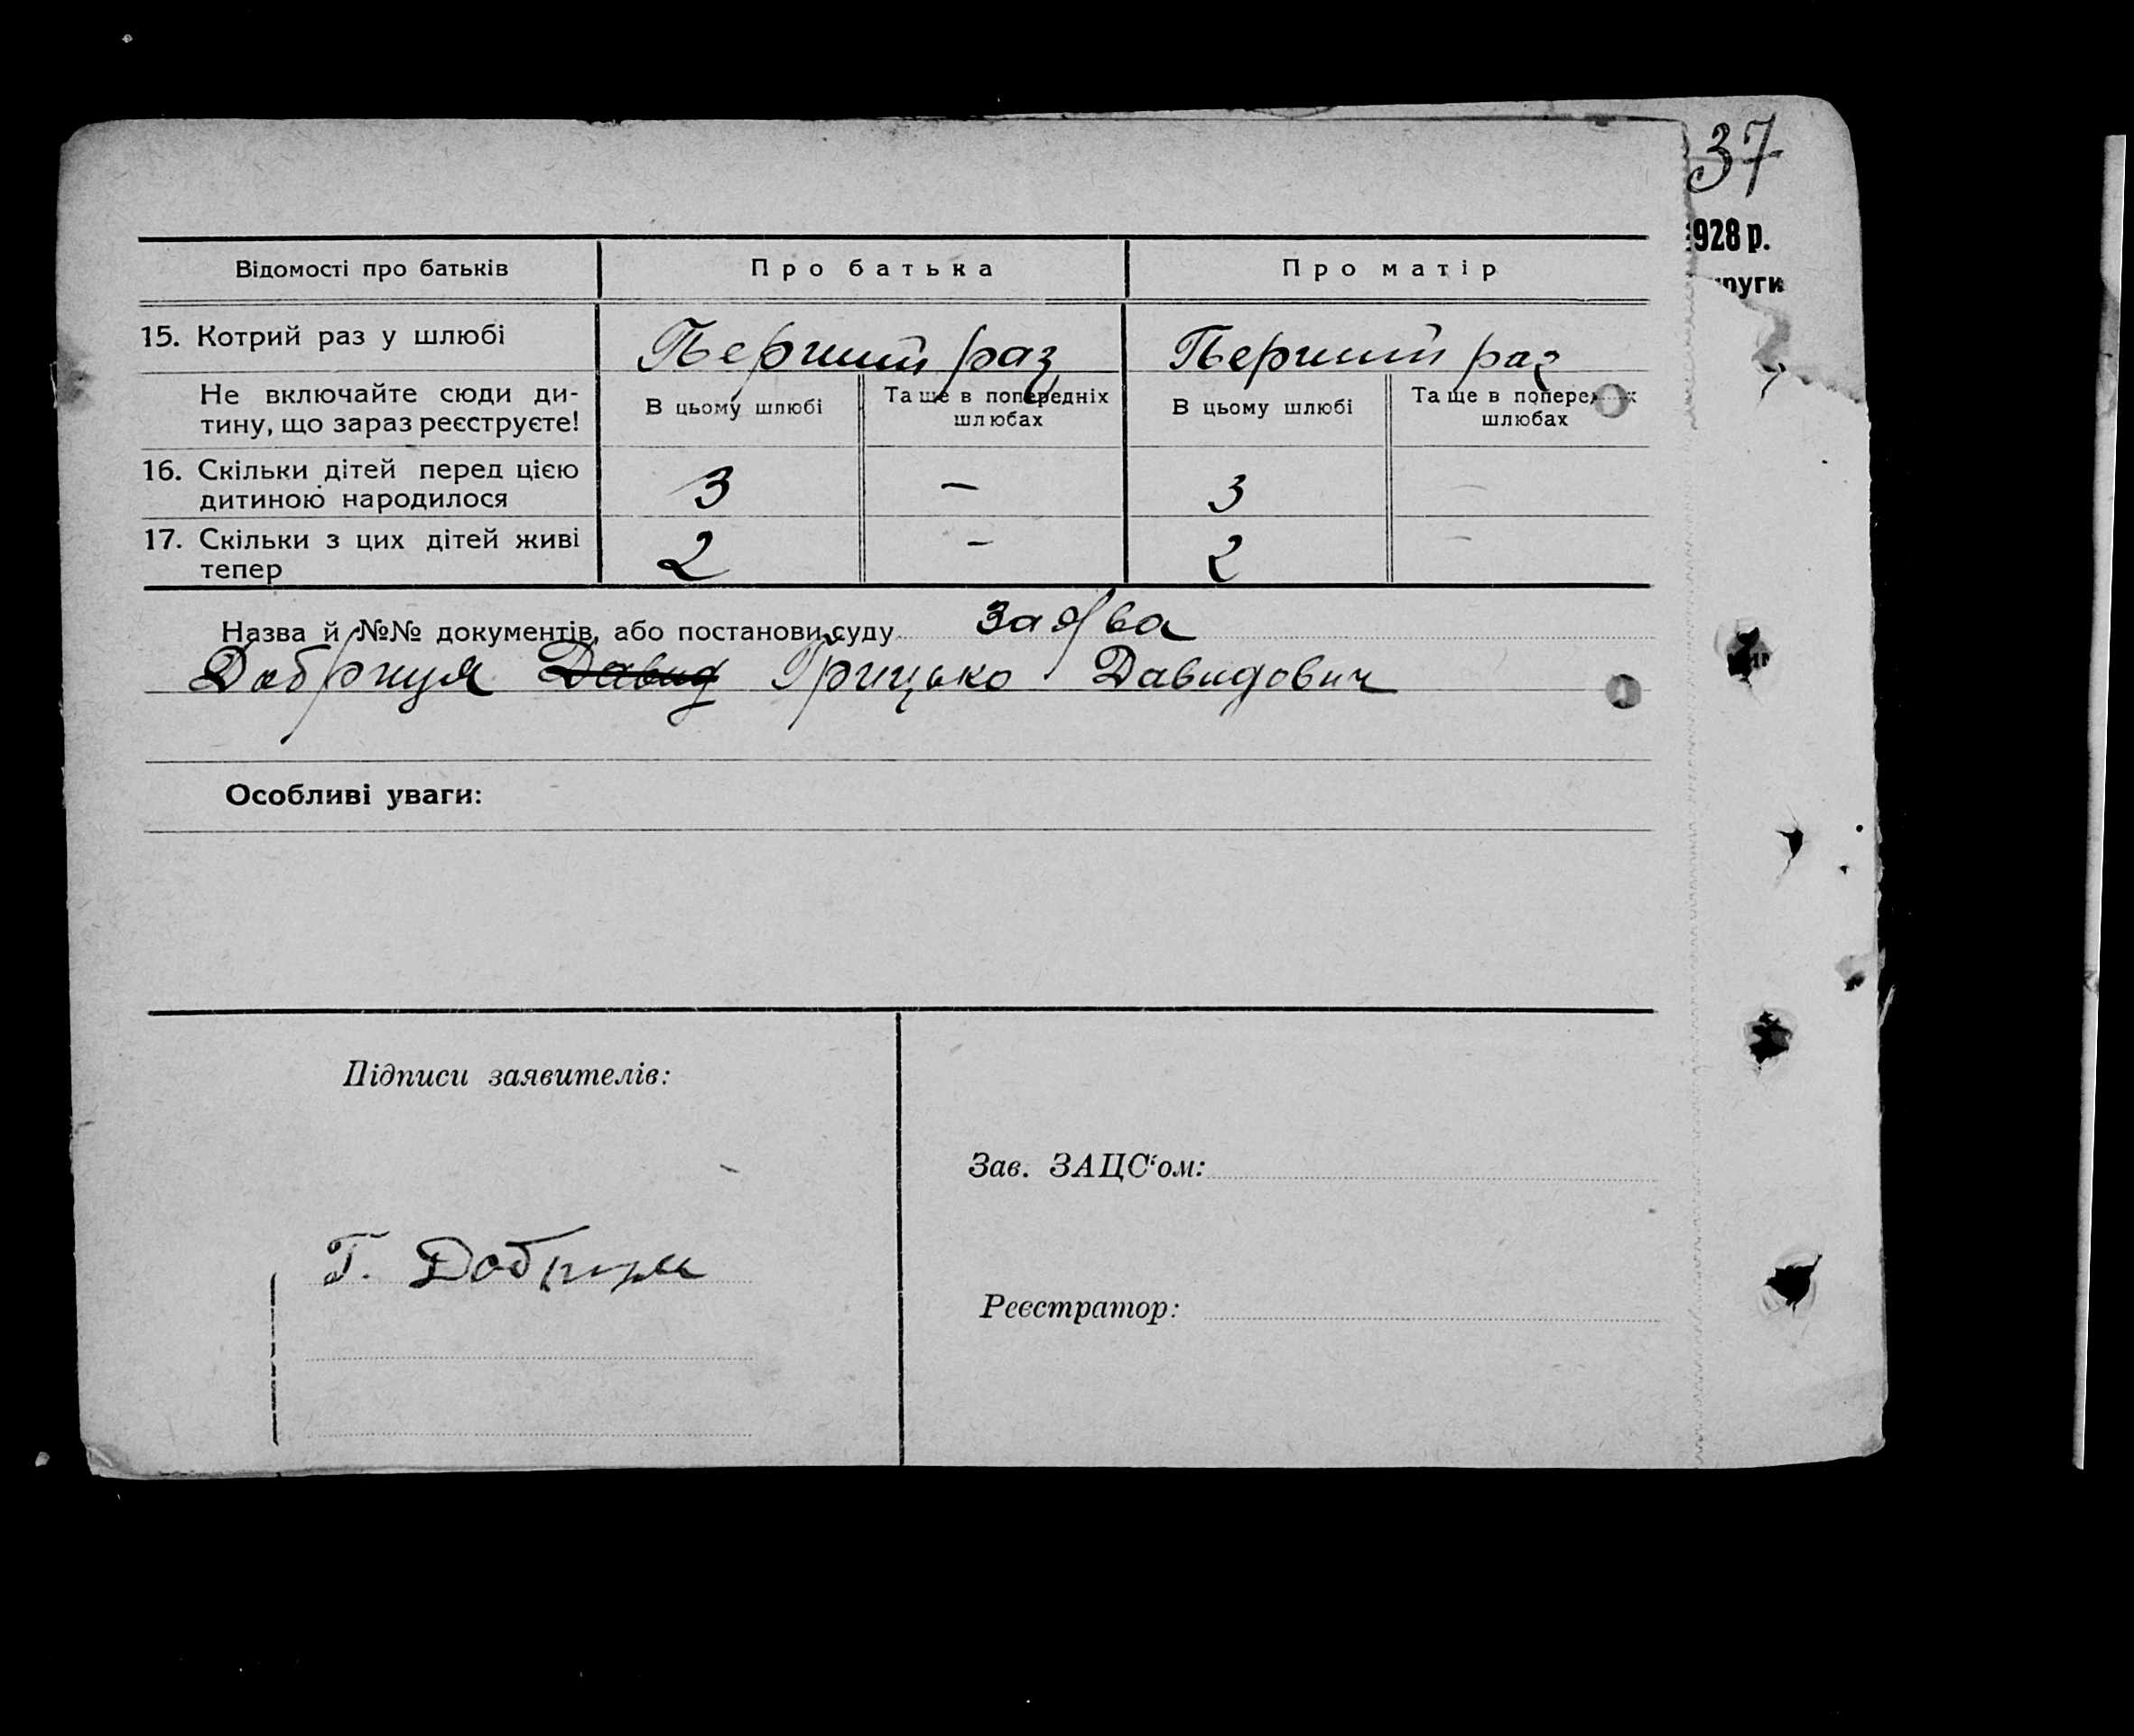 37
928 р.
руги
Відомості про батьків Про батька Про матір
15. Котрий раз у шлюбі Перший раз Перший раз
Не включайте сюди ди-
тину, що зараз реєструєте!
В цьому шлюбі Та ще в попередніх шлюбах В цьому шлюбі Та ще в попередніх шлюбах
16. Скільки дітей перед цією
дитиною народилося 3 — 3 —
17. Скільки з цих дітей живі
тепер 2 — 2 —
Назва й №№ документів, або постанови суду заява
Добриця Давид Грицько Давидович
Особливі уваги:
Підписи заявителів:
Зав. ЗАЦС‘ом:
Г. Добриця
Реєстратор: